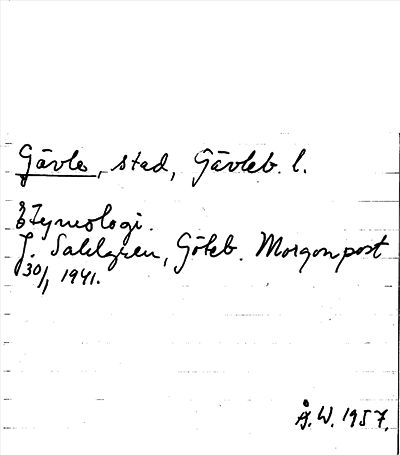 Gävle, stad, Gävleb. l.
Etymologi.
J. Sahlgren, Göteb. Morgonpost
30/1 1941.
Å.W. 1957.